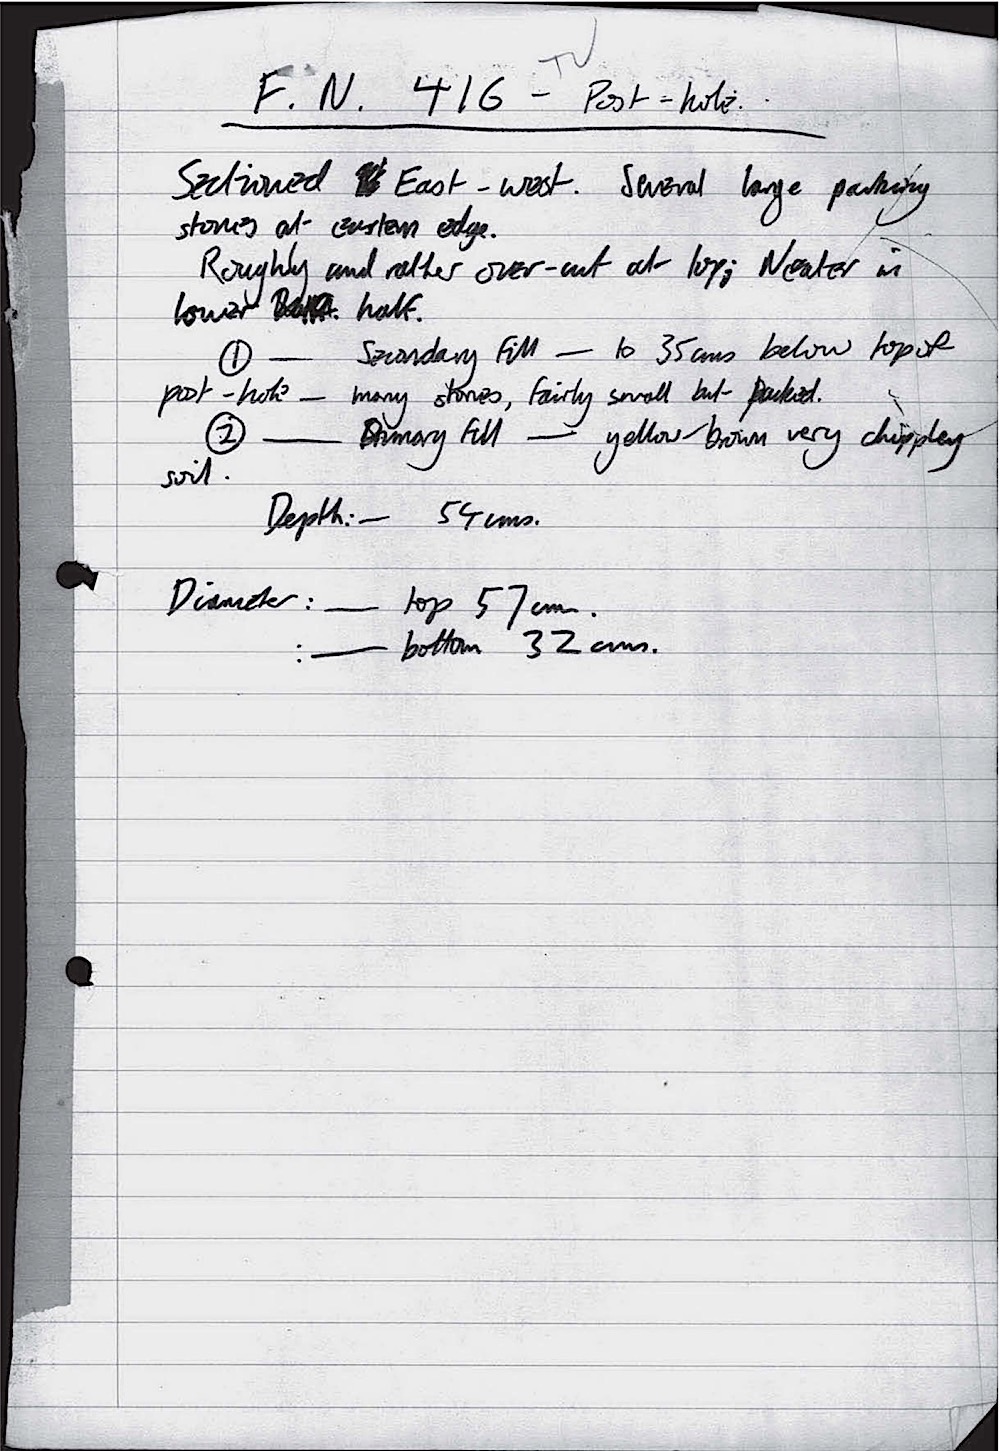 TV
F. N. 416 - Post-hole.
Sectioned East-west. Several large packing
stones at eastern edge.
Roughly and rather over-cut at top; Neater in
lower half.
① — Secondary Fill — to 35cms below top of
post-hole — many stones, fairly small but packed.
② — Primary Fill — yellow-brown very chippley
soil.
Depth:— 54cms.
Diameter:— top 57cm.
:— bottom 32cms.